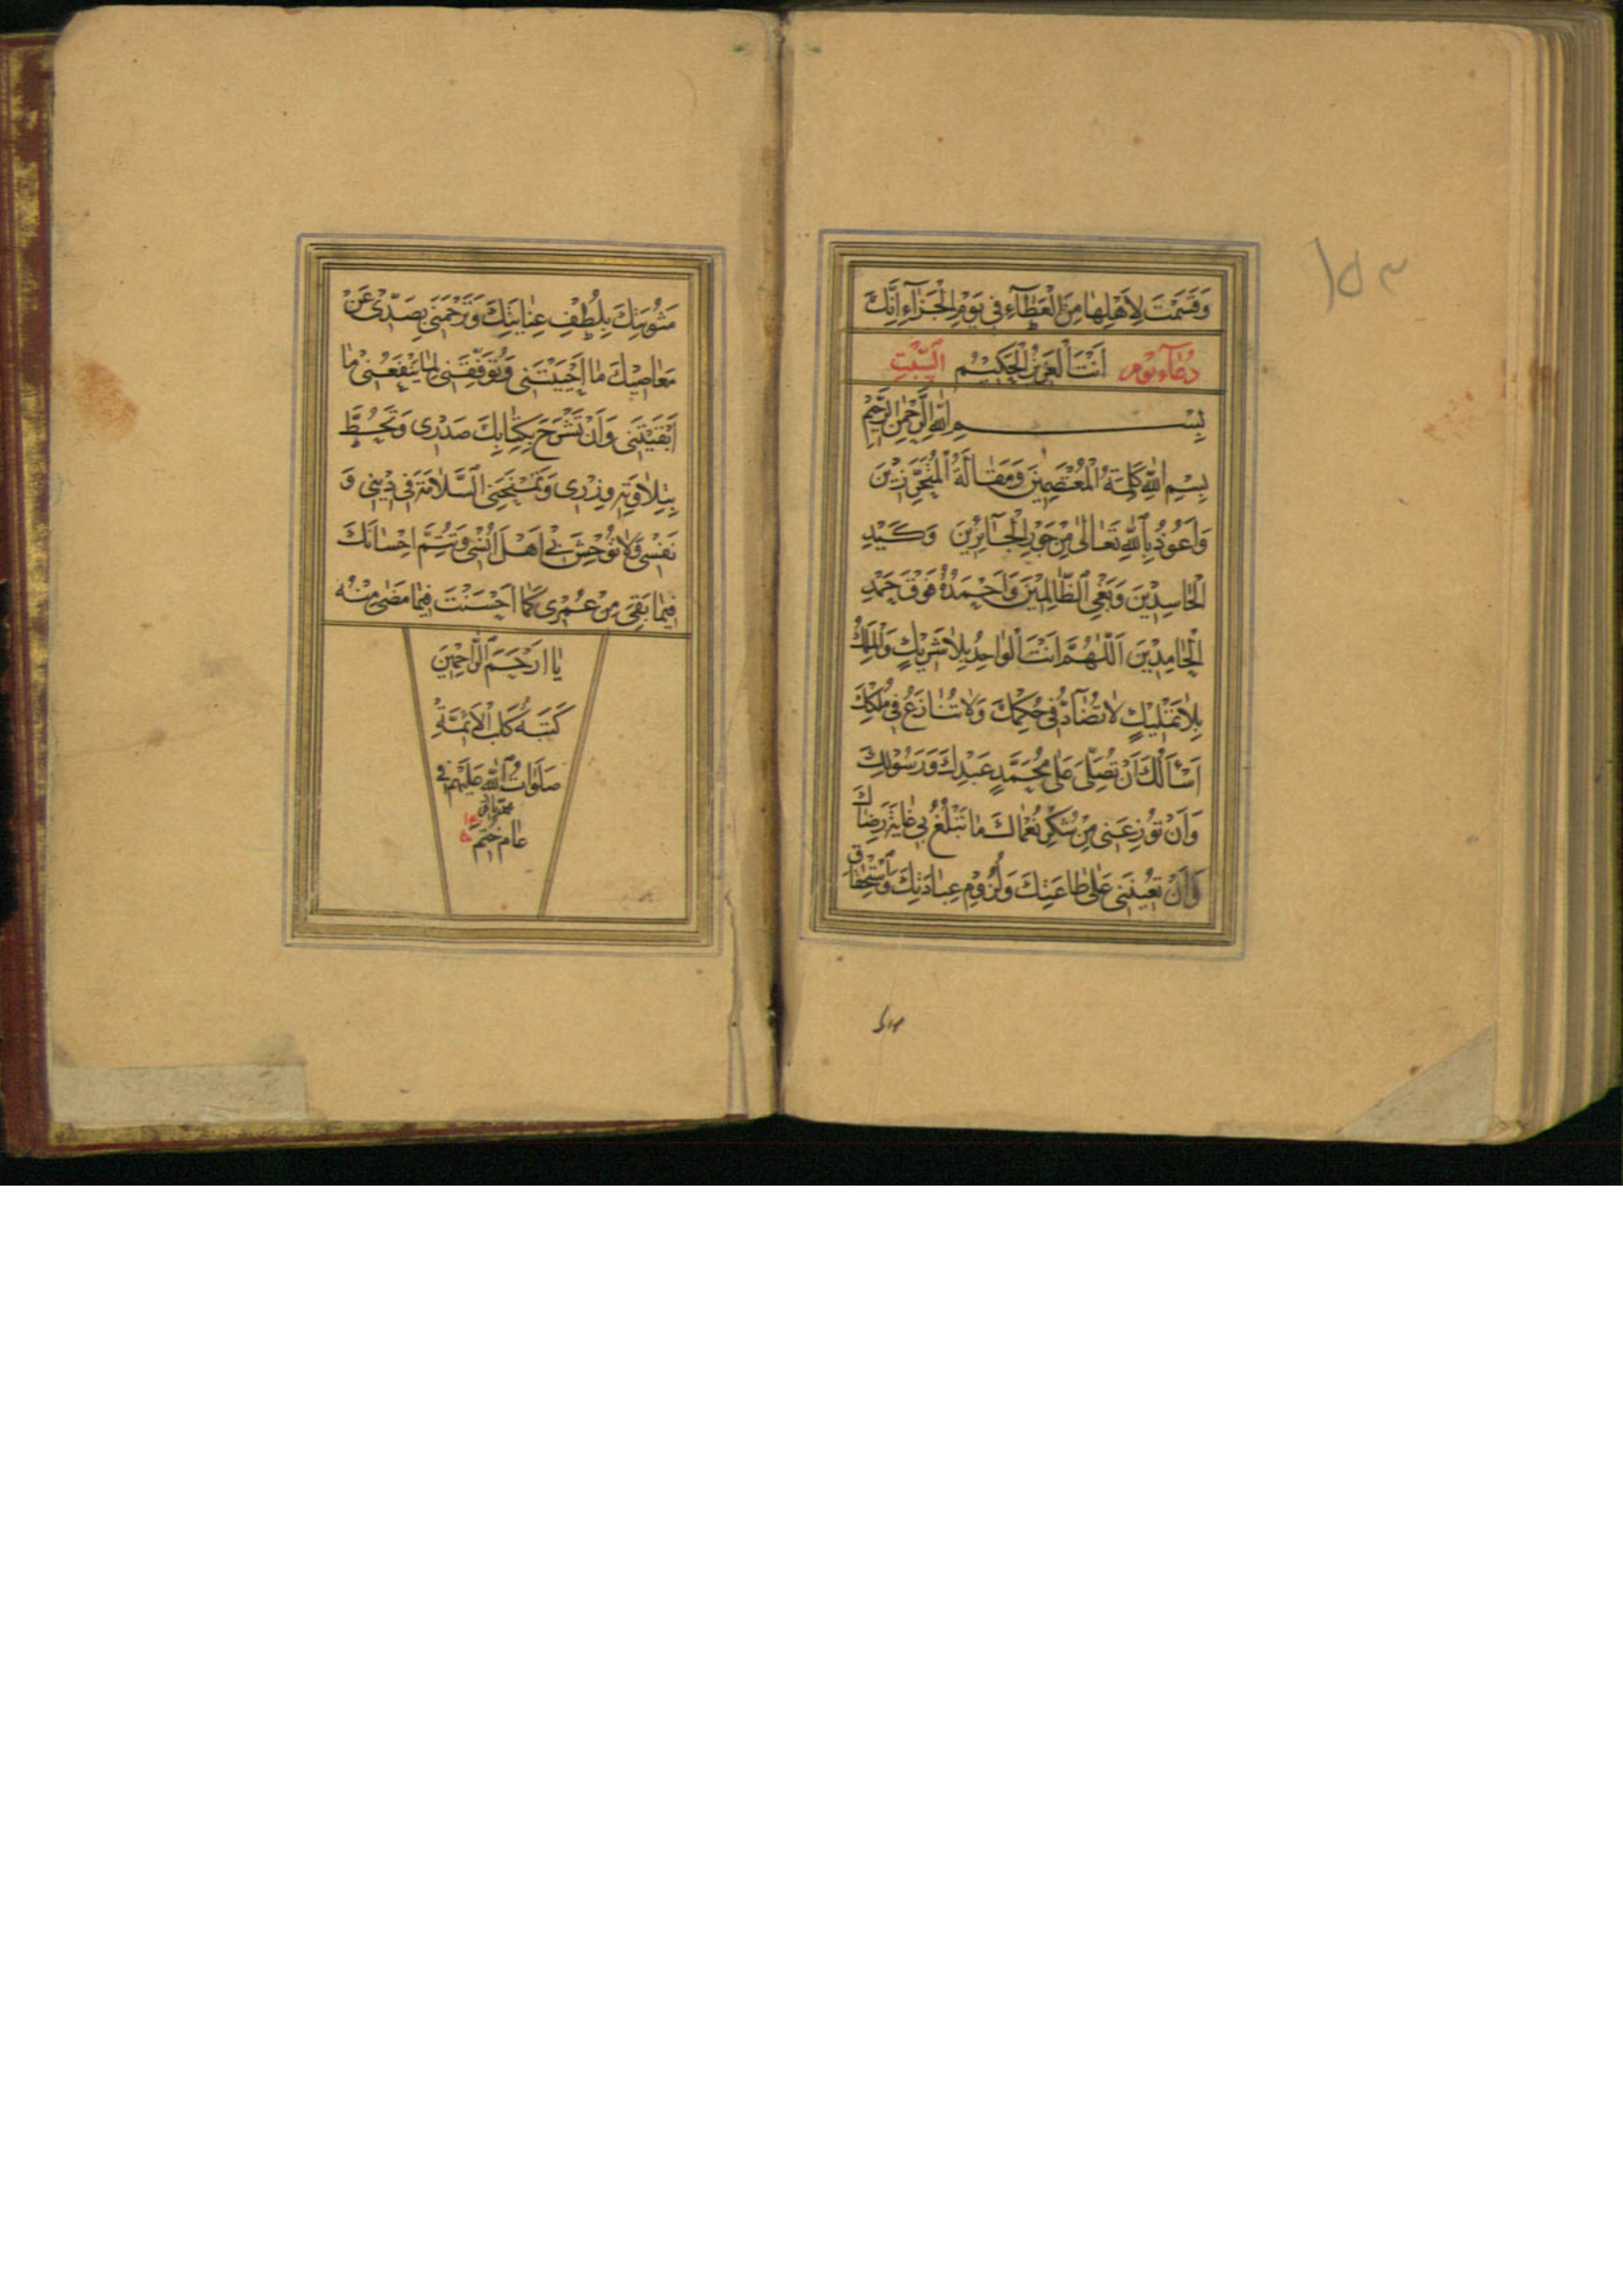 وَقَسَمْتَ لِأَهْلِهَا مِنَ الْعَطَآءِ فِي يَوْمِ الْجَزَآءِ اِنَّكَ
دُعَآءِ يَوْمِ اَنْتَ الْعَزِيزُ الْحَكِيْمُ السَّبْتِ
بِسْمِ اللهِ الرَّحْمٰنِ الرَّحِيْمِ
بِسْمِ اللهِ كَلِمَةُ الْمُعْتَصِمِيْنَ وَمَقَالَةُ الْمُتَحَرِّزِيْنَ
وَاَعُوْذُ بِاللهِ تَعَالٰى مِنْ جَوْرِ الْجَآئِرِيْنَ وَكَيْدِ
الْحَاسِدِيْنَ وَبَغْيِ الظَّالِمِيْنَ وَاَحْمَدُهُ فَوْقَ حَمْدِ
الْحَامِدِيْنَ اَللّٰهُمَّ اَنْتَ الْوَاحِدُ بِلَا شَرِيْكٍ وَالْمَلِكُ
بِلَا تَمْلِيْكٍ لَا تُضَآدُّ فِي حُكْمِكَ وَلَا تُنَازَعُ فِي مُلْكِكَ
اَسْأَلُكَ اَنْ تُصَلِّيَ عَلٰى مُحَمَّدٍ عَبْدِكَ وَرَسُوْلِكَ
وَاَنْ تُوْزِعَنِي مِنْ شُكْرِ نُعْمَاكَ مَا تَبْلُغُ بِي غَايَةَ رِضَاكَ
وَاَنْ تُعِيْنَنِي عَلٰى طَاعَتِكَ وَلُزُوْمِ عِبَادَتِكَ وَاسْتِحْقَاقِ
١٥٣
مَثُوْبَتِكَ بِلُطْفِ عِنَايَتِكَ وَتَرْحَمَنِي بِصَدِّي عَنْ
مَعَاصِيْكَ مَا اَحْيَيْتَنِي وَتُوَفِّقَنِي لِمَا يَنْفَعُنِي مَا
اَبْقَيْتَنِي وَاَنْ تَشْرَحَ بِكِتَابِكَ صَدْرِي وَتَحُطَّ
بِتِلَاوَتِهِ وِزْرِي وَتَمْنَحَنِي السَّلَامَةَ فِي دِيْنِي وَ
نَفْسِي وَلَا تُوْحِشَ بِي اَهْلَ اُنْسِي وَتُتِمَّ اِحْسَانَكَ
فِيْمَا بَقِيَ مِنْ عُمْرِي كَمَا اَحْسَنْتَ فِيْمَا مَضٰى مِنْهُ
يَا اَرْحَمَ الرَّاحِمِيْنَ
كَتَبَهُ كَلْبُ الْاَئِمَّةِ
صَلَوَاتُ اللهِ عَلَيْهِمْ فِي
عَام خُتِمَ